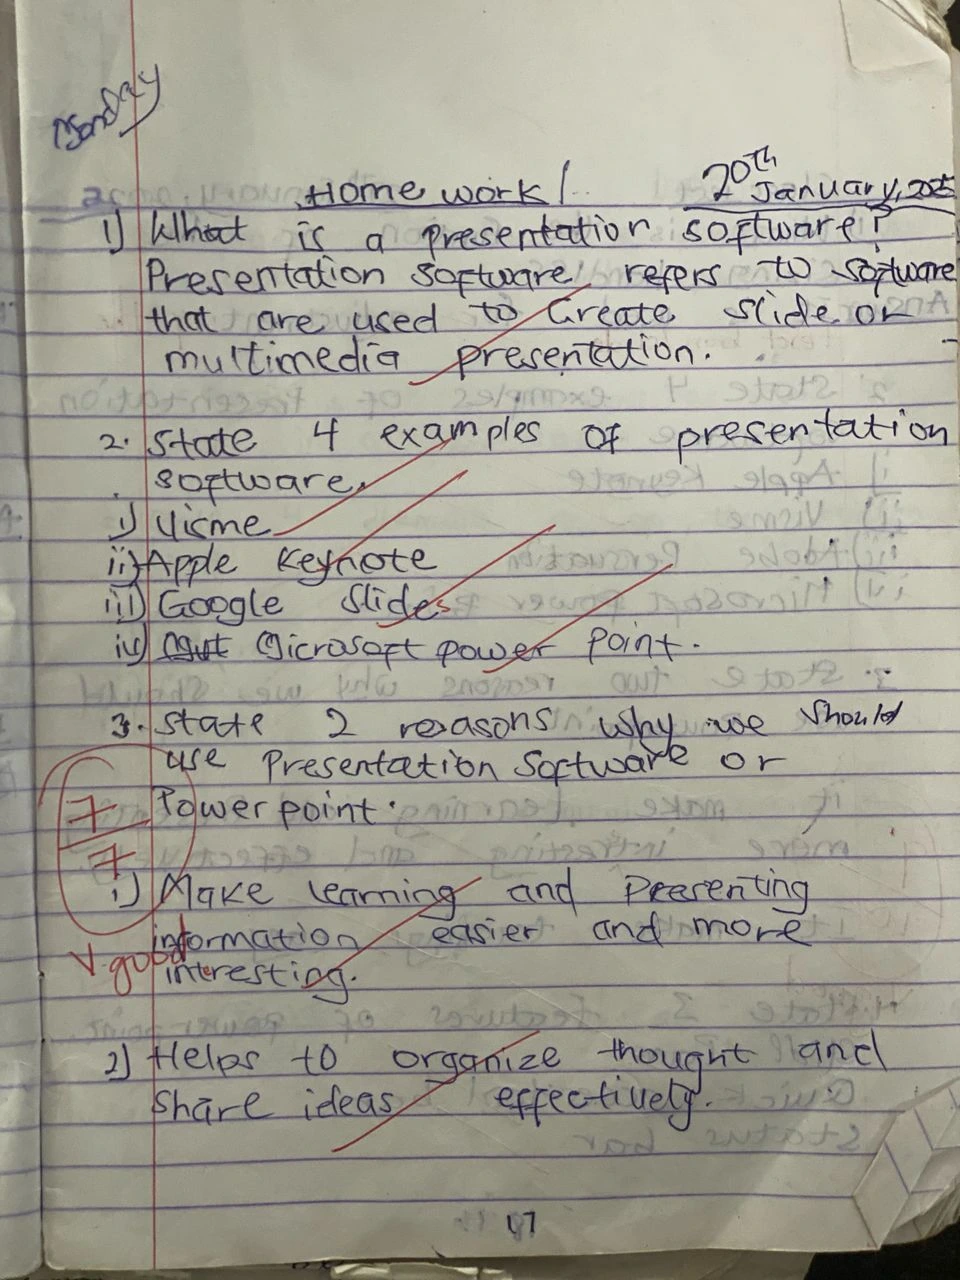 Monday
Home work
20th
January, 2025
1) What is a presentation software?
Presentation software refers to software
that are used to Create slide or
multimedia presentation.
2. State 4 examples of presentation
software.
i) Visme
ii) Apple Keynote
iii) Google Slides
iv) Microsoft power point.
3. State 2 reasons why we should
use Presentation Software or
Powerpoint.
7
7
i) Make learning and Preesenting
information easier and more
V. good
interesting.
2) Helps to organize thought and
share ideas effectively.